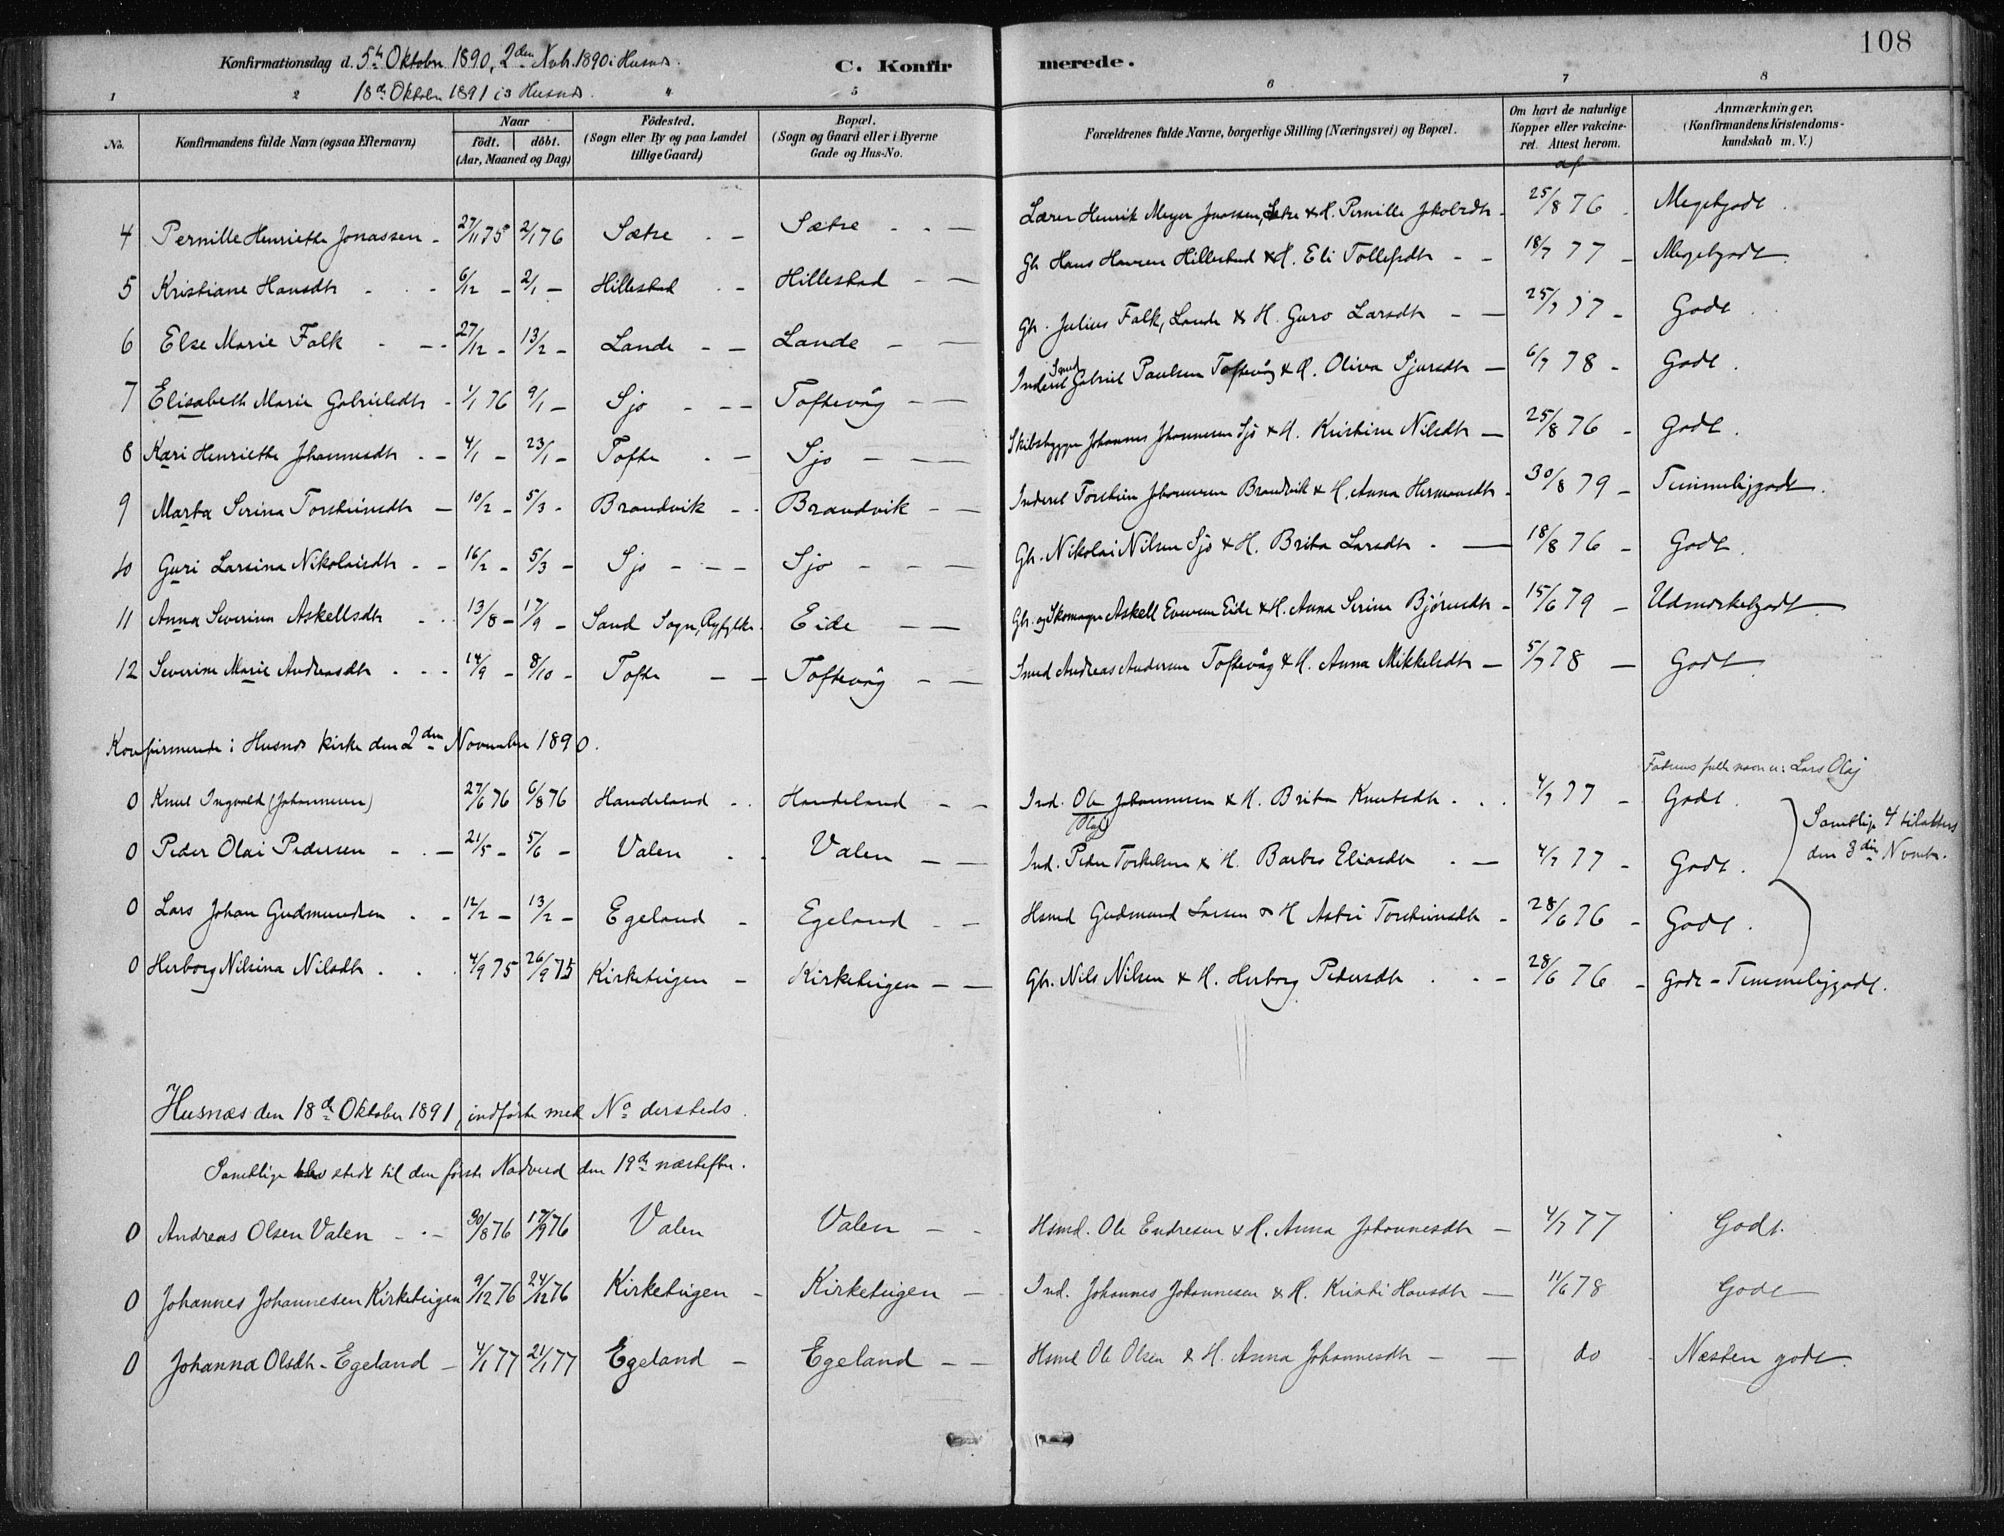 108
Konfirmationsdag d. 5te Oktober 1890, 2den Novb. 1890 i Husnæs. C. Konfirmerede.
18de Oktober 1891 i Husnæs.
1 2 4 5 6 7 8
No. Konfirmandens fulde Navn (ogsaa Efternavn) Naar födt. döbt. (Aar, Maaned og Dag) Födested. (Sogn eller By og paa Landet tillige Gaard) Bopæl. (Sogn og Gaard eller i Byerne Gade og Hus-No. Forældrenes fulde Navne, borgerlige Stilling (Næringsvei) og Bopæl. Om havt de naturlige Kopper eller vakcineret. Attest herom. af Anmærkninger. (Konfirmandens Kristendomskundskab m. V.)
4 Pernille Henriette Jonassen - 27/11 75 2/1 76 Sætre - Sætre - - Lærer Henrik Meyer Jonassen, Sætre & H. Pernille Jakobsdtr - 25/8 76 - Megetgodt.
5 Kristiane Hansdtr - - 6/12 - 2/1 - Hillestad - Hillestad - - Gbr. Hans Hansen Hillestad & H. Eli Tollefsdtr - - 18/7 77 - Megetgodt
6 Else Marie Falk - - 27/12 - 13/2 - Lande - - Lande - - Gbr. Julius Falk, Lande & H. Guro Larsdtr - - 25/7 77 - Godt
7 Elisabeth Marie Gabrielsdtr - 1/1 76 9/1 - Sjo - - - Toftevåg - - Inderst Smed Gabriel Paulsen Toftevåg & H. Oliva Sjursdtr - 6/7 78 - Godt.
8 Kari Henriette Johannesdtr - - 4/1 - 23/1 - Tofte - - Sjo - - Skibsbygger Johannes Johannesen Sjo & H. Kristine Nilsdtr - 25/8 76 - Godt.
9 Marta Serina Torsteinsdtr - 10/2 - 5/3 - Brandvik - - Brandvik - - Inderst Torstein Johannesen Brandvik & H. Anna Hermansdtr - 30/8 79 - Temmeliggodt.
10 Guri Larsina Nikolaisdtr - - 16/2 - 5/3 - Sjo - - - Sjo - - - Gbr. Nikolai Nilsen Sjo & H. Brita Larsdtr - - 18/8 76 - Godt.
11 Anna Severine Askellsdtr - - 13/8 - 17/9 - Sand Sogn, Ryfylke. Eide - - Gbr. og Skomager Askell Eide & H. Anna Serine Bjørnsdtr - 15/6 79 - Udmerketgodt
12 Severine Marie Andreasdtr - - - 14/9 - 8/10 - Tofte - - Toftevåg - - Smed Andreas Andersen Toftevåg & H. Anna Mikkelsdtr - 5/7 78 - Godt
Konfirmerede i Husnæs kirke den 2den November 1890.
Faderens fulde navn er: Lars Olaj
0 Knut Ingvald (Johannesen) 27/6 76 6/8 76 Handeland - - Handeland - - Ind. Ole Johannesen & H. Brita Knutsdtr - - - 4/7 77 - Godt.
(Olaj)
0 Peder Olai Pedersen - - 21/5 - 5/6 - Valen - - Valen - - Ind. Peder Torkelsen & H. Barbro Eliasdtr - - 4/7 77 - Godt.
Samtlige 4 den 3die Novbr.
0 Lars Johan Gudmundsen - - 12/2 - 13/2 - Egeland - Egeland - - Hsmd Gudmund Larsen & H Astri Torsteinsdtr - 28/6 76 - Godt.
0 Herborg Nilsina Nilsdtr - - - 4/9 75 26/9 75 Kirketeigen - Kirketeigen - - Gbr. Nils Nilsen & H. Herborg Pedersdtr - - - 28/6 76 - Godt - Temmeliggodt.
Husnæs den 18de Oktober 1891, indførte med No dersteds.
Samtlige blev stedt til den første Nadverd den 19de næstefter.
0 Andreas Olsen Valen - - 30/8 76 17/9 76 Valen Valen - - Hsmd. Ole Endresen & H. Anna Johannesdtr - 4/7 77 Godt.
0 Johannes Johannesen Kirketeigen 9/12 76 24/12 76 Kirketeigen - Kirketeigen - - Ind. Johannes Johannesen & H. Kristi Hansdtr - 11/6 78 Godt
0 Johanna Olsdtr - Egeland - 4/1 77 21/1 77 Egeland - Egeland - - Hsmd Ole Olsen & H. Anna Johannesdtr - - do - Næsten godt.